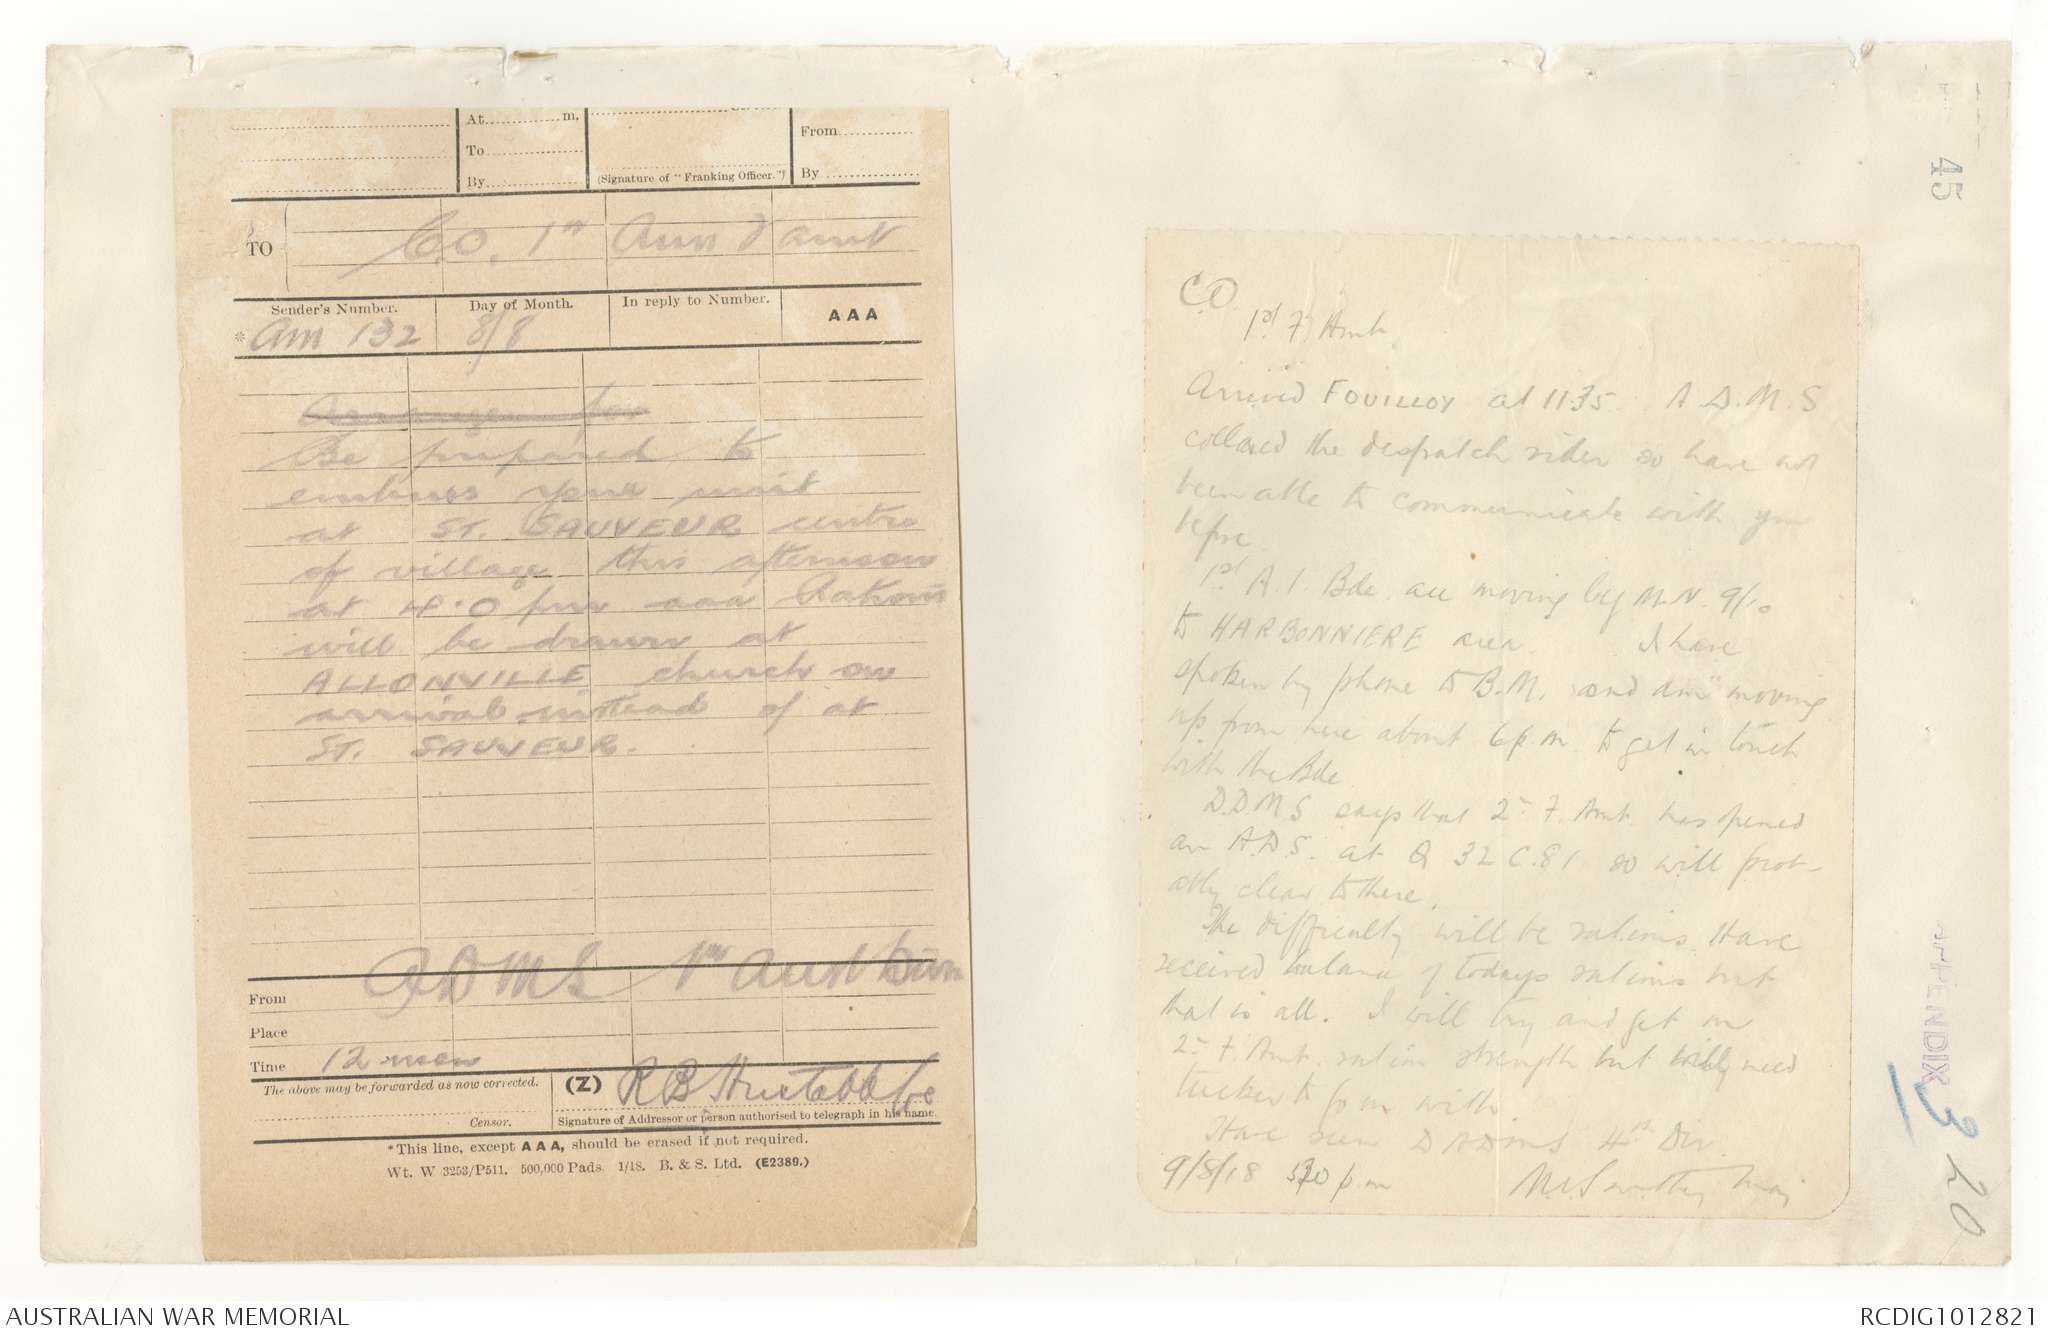 At.............m.
To
By
(Signature of "Franking Officer.")
From
By
TO
C.O. 1st Aus F amb
Sender's Number.
Day of Month.
In reply to Number.
AAA
* Am 132
8/8
Arrange for
Be prepared to
embuss your unit
at ST. SAUVEUR centre
of village this afternoon
at 4.0 pm aaa Rations
will be drawn at
ALLONVILLE church on
arrival instead of at
ST. SAUVEUR.
From
ADMS 1st Aust Divn
Place
Time 12 noon
The above may be forwarded as now corrected.
(Z)
Censor.
Signature of Addressor or person authorised to telegraph in his name.
*This line, except AAA, should be erased if not required.
Wt. W 3253/P511. 500,000 Pads. 1/18. B. & S. Ltd. (E2389.)
C.O.
1st F Amb.
Arrived FOUILLOY at 11.35. A.D.M.S
collared the despatch rider so have not
been able to communicate with you
before
1st A.I. Bde are moving by M.N. 9/10
to HARBONNIERE area. I have
spoken by phone to B.M. and am moving
up from here about 6 p.m. to get in touch
with the Bde
D.D.M.S says that 2nd F. Amb. has opened
an A.D.S. at Q 32 C.8.1 so will prob-
ably clear to there.
The difficulty will be rations. Have
received balance of todays rations but
that is all. I will try and get on
2nd F. Amb. ration strength but will need
tucker to go on with
Have seen DADMS 4th Div.
9/8/18 p.m
Maj
45
APPENDIX 3
20
AUSTRALIAN WAR MEMORIAL
RCDIG1012821